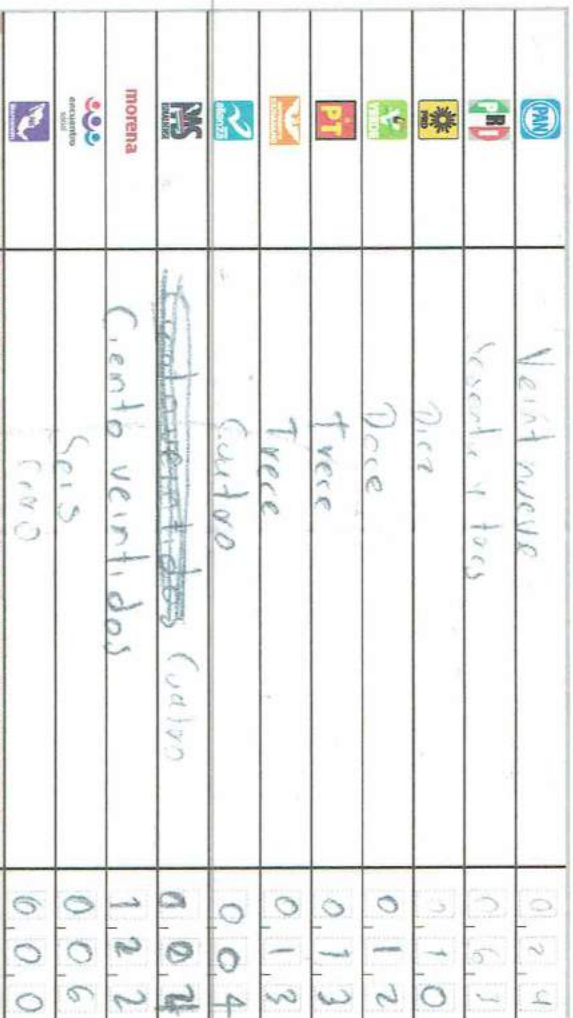 PAN Veintinueve 0 2
PRI y tres 0 6
PRD Diez 0 1 0
VERDE Doce 0 1 2
PT Trece 0 1 3
Trece 0 1 3
alianza Cuatro 0 0 4
MAS Cuatro 0 0 4
morena Ciento veintidos 1 2 2
encuentro social Seis 0 0 6
Cero 0 0 0